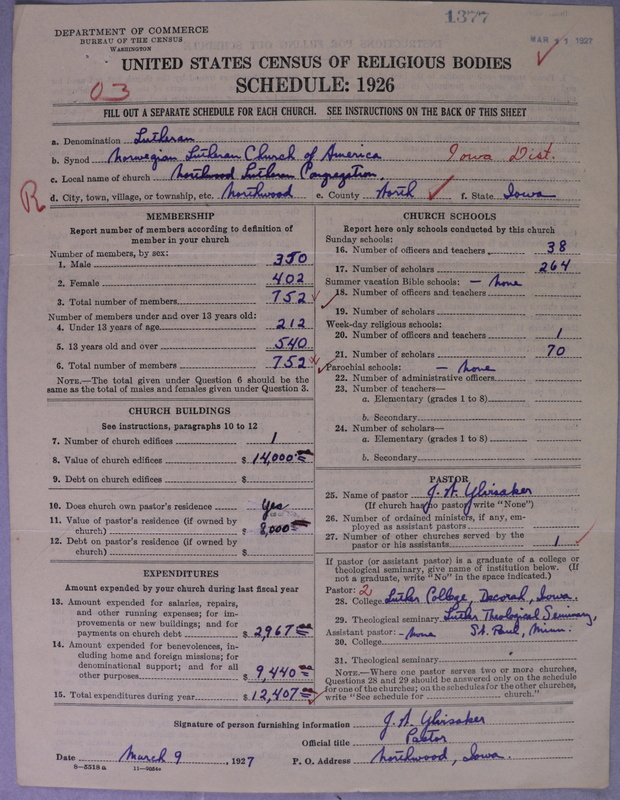 1377
DEPARTMENT OF COMMERCE
BUREAU OF THE CENSUS
WASHINGTON
MAR 11 1927
UNITED STATES CENSUS OF RELIGIOUS BODIES
SCHEDULE: 1926
03
FILL OUT A SEPARATE SCHEDULE FOR EACH CHURCH. SEE INSTRUCTIONS ON THE BACK OF THIS SHEET
a. Denomination Lutheran
b. Synod Norwegian Lutheran Church of America Iowa Dist.
c. Local name of church Northwood Lutheran Congregation.
R
d. City, town, village, or township, etc. Northwood e. County Worth f. State Iowa
MEMBERSHIP
Report number of members according to definition of
member in your church
Number of members, by sex:
1. Male 350
2. Female 402
3. Total number of members 752
Number of members under and over 13 years old:
4. Under 13 years of age 212
5. 13 years old and over 540
6. Total number of members 752
NOTE.—The total given under Question 6 should be the
same as the total of males and females given under Question 3.
CHURCH BUILDINGS
See instructions, paragraphs 10 to 12
7. Number of church edifices 1
8. Value of church edifices $ 14,000
9. Debt on church edifices $
10. Does church own pastor's residence Yes
11. Value of pastor's residence (if owned by
church) $ 8,000
12. Debt on pastor's residence (if owned by
church) $
EXPENDITURES
Amount expended by your church during last fiscal year
13. Amount expended for salaries, repairs,
and other running expenses; for im-
provements or new buildings; and for
payments on church debt $ 2,967
14. Amount expended for benevolences, in-
cluding home and foreign missions; for
denominational support; and for all
other purposes $ 9,440
15. Total expenditures during year $ 12,407
CHURCH SCHOOLS
Report here only schools conducted by this church
Sunday schools:
16. Number of officers and teachers 38
17. Number of scholars 264
Summer vacation Bible schools: - None
18. Number of officers and teachers
19. Number of scholars
Week-day religious schools:
20. Number of officers and teachers 1
21. Number of scholars 70
Parochial schools: - None
22. Number of administrative officers
23. Number of teachers—
a. Elementary (grades 1 to 8)
b. Secondary
24. Number of scholars—
a. Elementary (grades 1 to 8)
b. Secondary
PASTOR
25. Name of pastor J. A. Ylvisaker
(If church has no pastor write "None")
26. Number of ordained ministers, if any, em-
ployed as assistant pastors
27. Number of other churches served by the
pastor or his assistants 1
If pastor (or assistant pastor) is a graduate of a college or
theological seminary, give name of institution below. (If
not a graduate, write "No" in the space indicated.)
Pastor: 2
28. College Luther College, Decorah, Iowa.
29. Theological seminary Luther Theological Seminary,
Assistant pastor: - None St. Paul, Minn.
30. College
31. Theological seminary
NOTE.—Where one pastor serves two or more churches,
Questions 28 and 29 should be answered only on the schedule
for one of the churches; on the schedules for the other churches,
write "See schedule for church."
Signature of person furnishing information J. A. Ylvisaker
Official title Pastor
Date March 9, 1927 P. O. Address Northwood, Iowa.
8—5518a 11—9084a